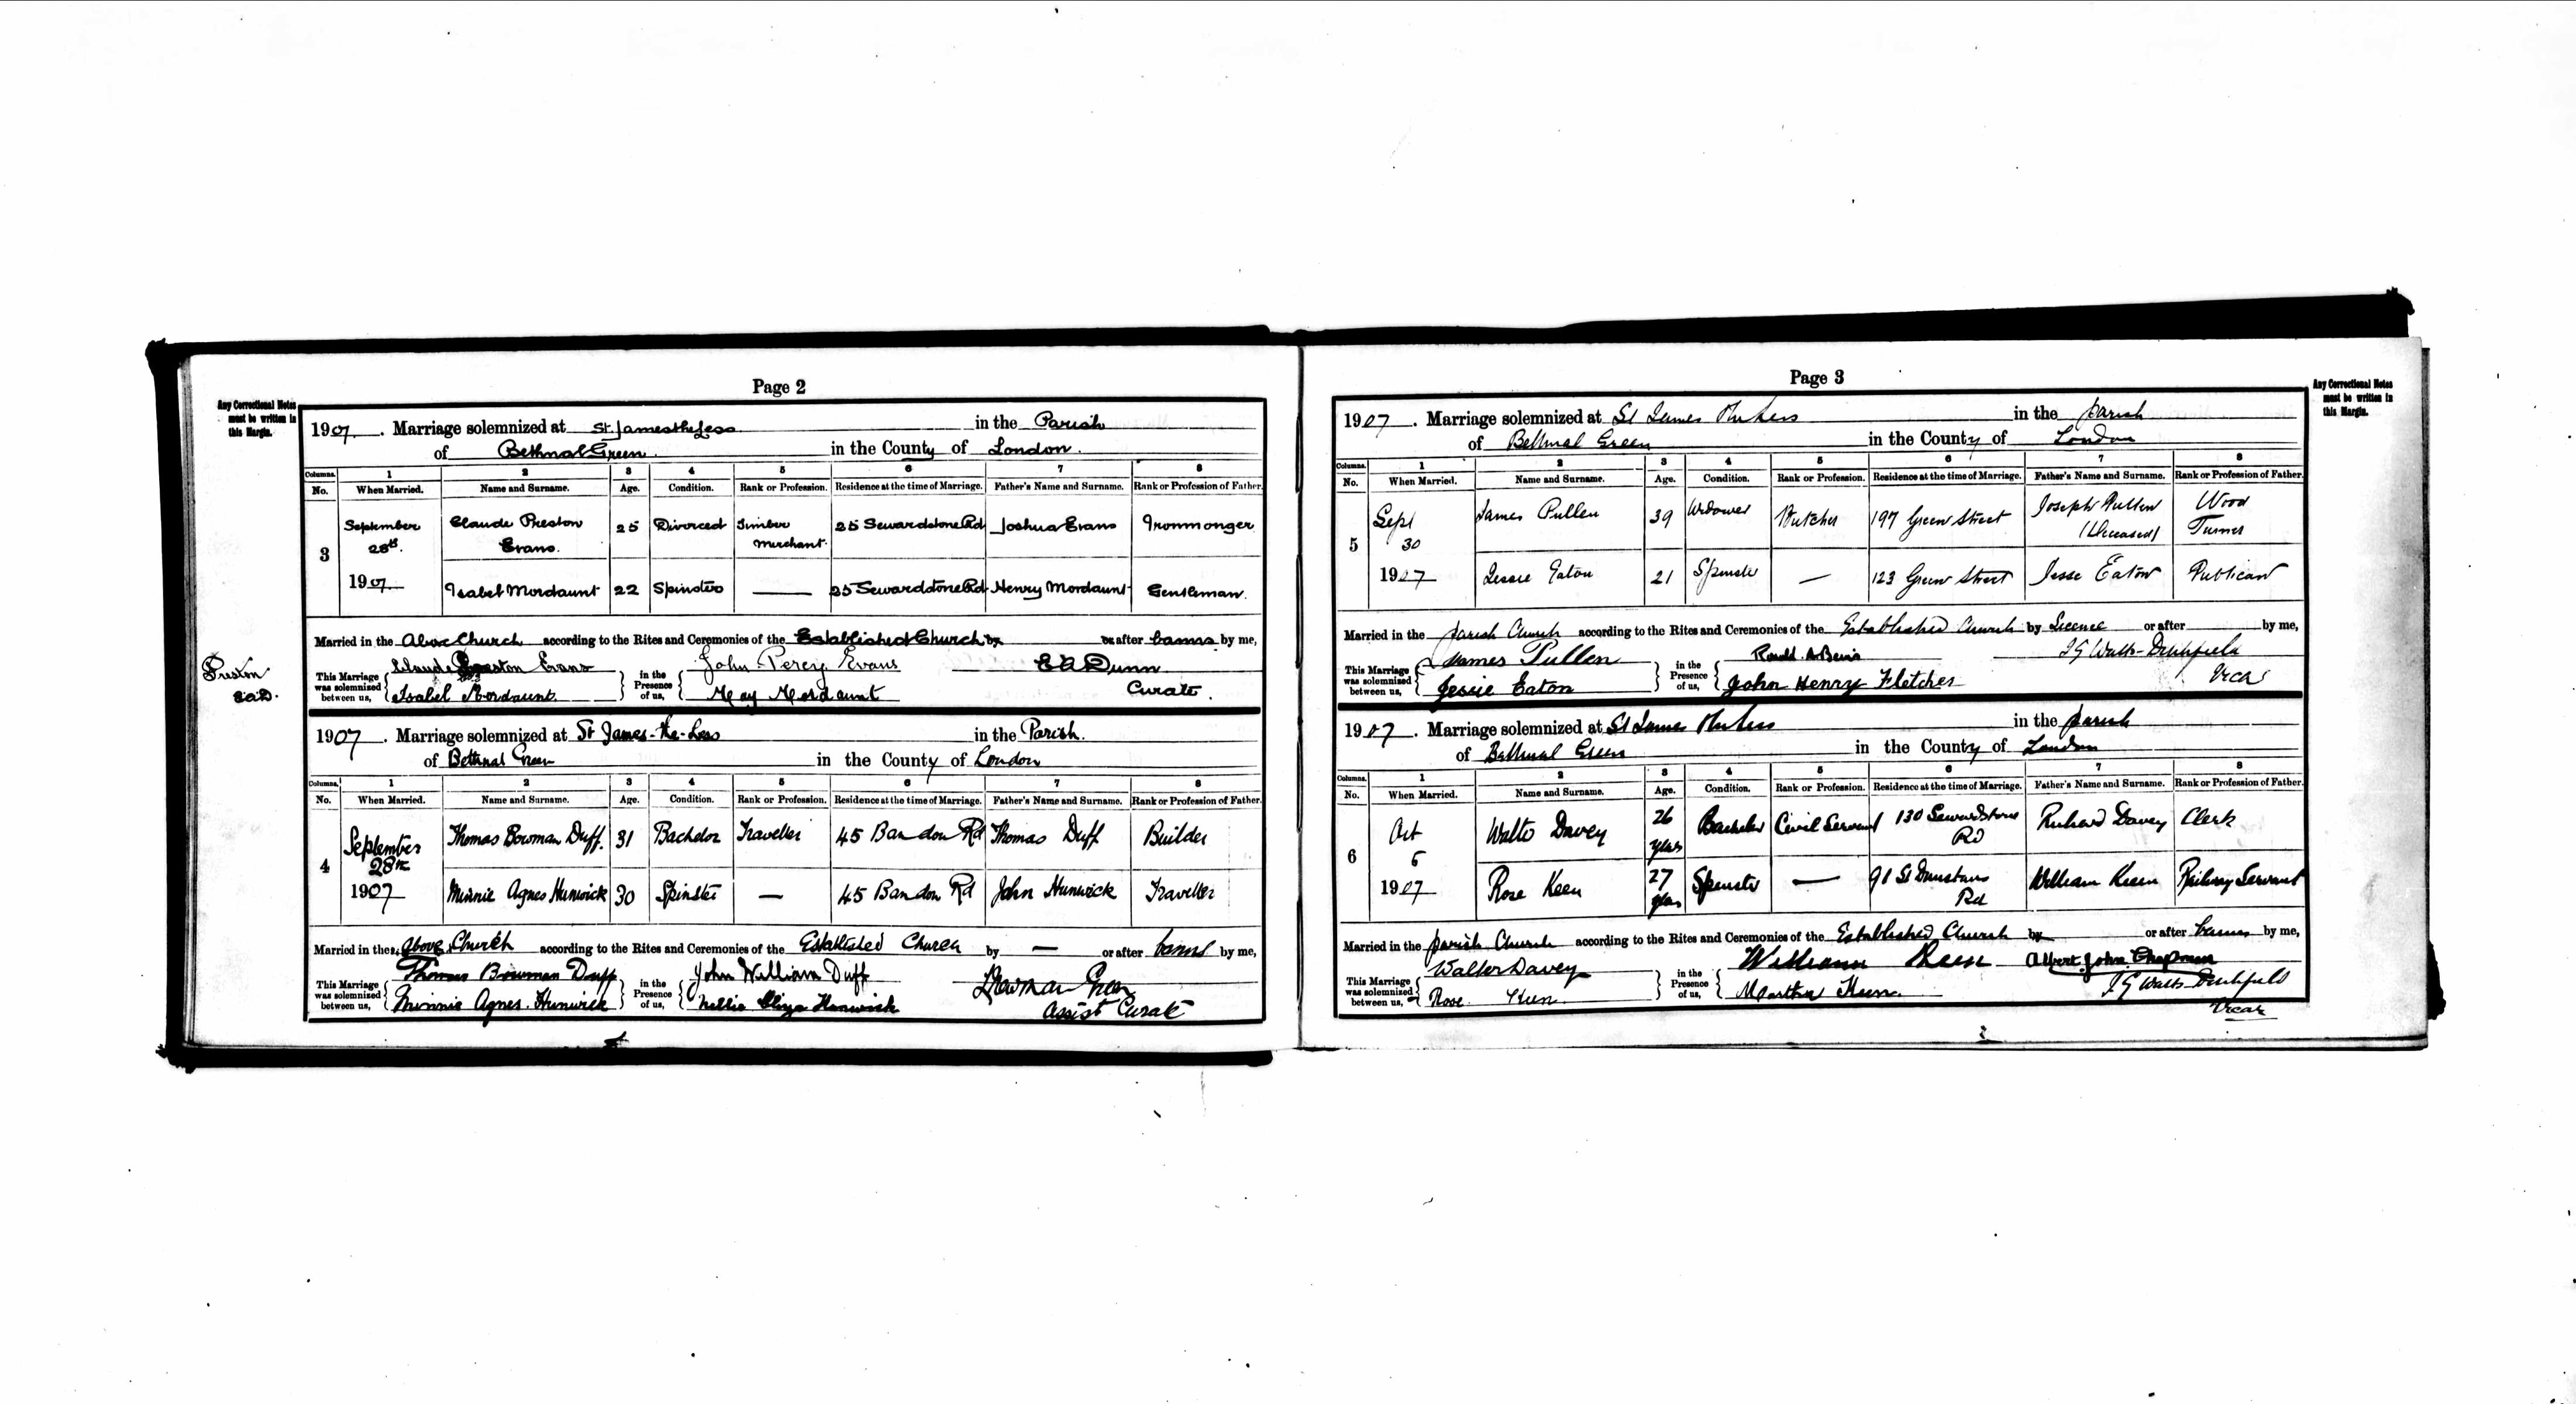 Page 2
Any Correctional Notes
must be written in
this Margin.
1907. Marriage solemnized at St. James the Less in the Parish
of Bethnal Green. in the County of London.
Columns. 1 2 3 4 5 6 7 8
No. When Married. Name and Surname. Age. Condition. Rank or Profession. Residence at the time of Marriage. Father's Name and Surname. Rank or Profession of Father.
3 September 28th 1907 Claude Preston Evans. 25 Divorced Timber Merchant. 25 Sewardstone Rd Joshua Evans Ironmonger
Isabel Mordaunt 22 Spinster — 25 Sewardstone Rd Henry Mordaunt Gentleman.
Married in the Above Church according to the Rites and Ceremonies of the Established Church by or after banns by me,
This Marriage was solemnized between us, Claude Preston Evans in the Presence of us, John Percy Evans E A Dunn
Isabel Mordaunt. May Mordaunt Curate.
Preston
1907. Marriage solemnized at St James-the-Less in the Parish.
of Bethnal Green in the County of London
Columns. 1 2 3 4 5 6 7 8
No. When Married. Name and Surname. Age. Condition. Rank or Profession. Residence at the time of Marriage. Father's Name and Surname. Rank or Profession of Father.
4 September 28th 1907 Thomas Bowman Duff. 31 Bachelor Traveller 45 Bandon Rd Thomas Duff Builder
Minnie Agnes Hunwick 30 Spinster — 45 Bandon Rd John Hunwick Traveller
Married in the Above Church according to the Rites and Ceremonies of the Established Church by — or after banns by me,
This Marriage was solemnized between us, Thomas Bowman Duff in the Presence of us, John William Duff
Minnie Agnes Hunwick Nellie Eliza Hunwick Assist Curate
Page 3
Any Correctional Notes
must be written in
this Margin.
1907. Marriage solemnized at St James the Less in the parish
of Bethnal Green in the County of London
Columns. 1 2 3 4 5 6 7 8
No. When Married. Name and Surname. Age. Condition. Rank or Profession. Residence at the time of Marriage. Father's Name and Surname. Rank or Profession of Father.
5 Sept 30 1907 James Pullen 39 Widower Butcher 197 Green Street Joseph Pullen (Deceased) Wood Turner
Jessie Eaton 21 Spinster — 123 Green Street Jesse Eaton Publican
Married in the parish Church according to the Rites and Ceremonies of the Established Church by Licence or after by me,
This Marriage was solemnized between us, James Pullen in the Presence of us, J G Watts-Ditchfield
Jessie Eaton John Henry Fletcher Vicar
1907. Marriage solemnized at St James the Less in the parish
of Bethnal Green in the County of London
Columns. 1 2 3 4 5 6 7 8
No. When Married. Name and Surname. Age. Condition. Rank or Profession. Residence at the time of Marriage. Father's Name and Surname. Rank or Profession of Father.
6 Oct 6 1907 Walter Davey 26 years Bachelor Civil Servant 130 Sewardstone Rd Richard Davey Clerk
Rose Keen 27 years Spinster — 91 St Dunstans Rd William Keen Railway Servant
Married in the parish Church according to the Rites and Ceremonies of the Established Church by or after banns by me,
This Marriage was solemnized between us, Walter Davey in the Presence of us, William Keen Albert John Chapman
Rose Keen Martha Keen. J G Watts-Ditchfield
Vicar